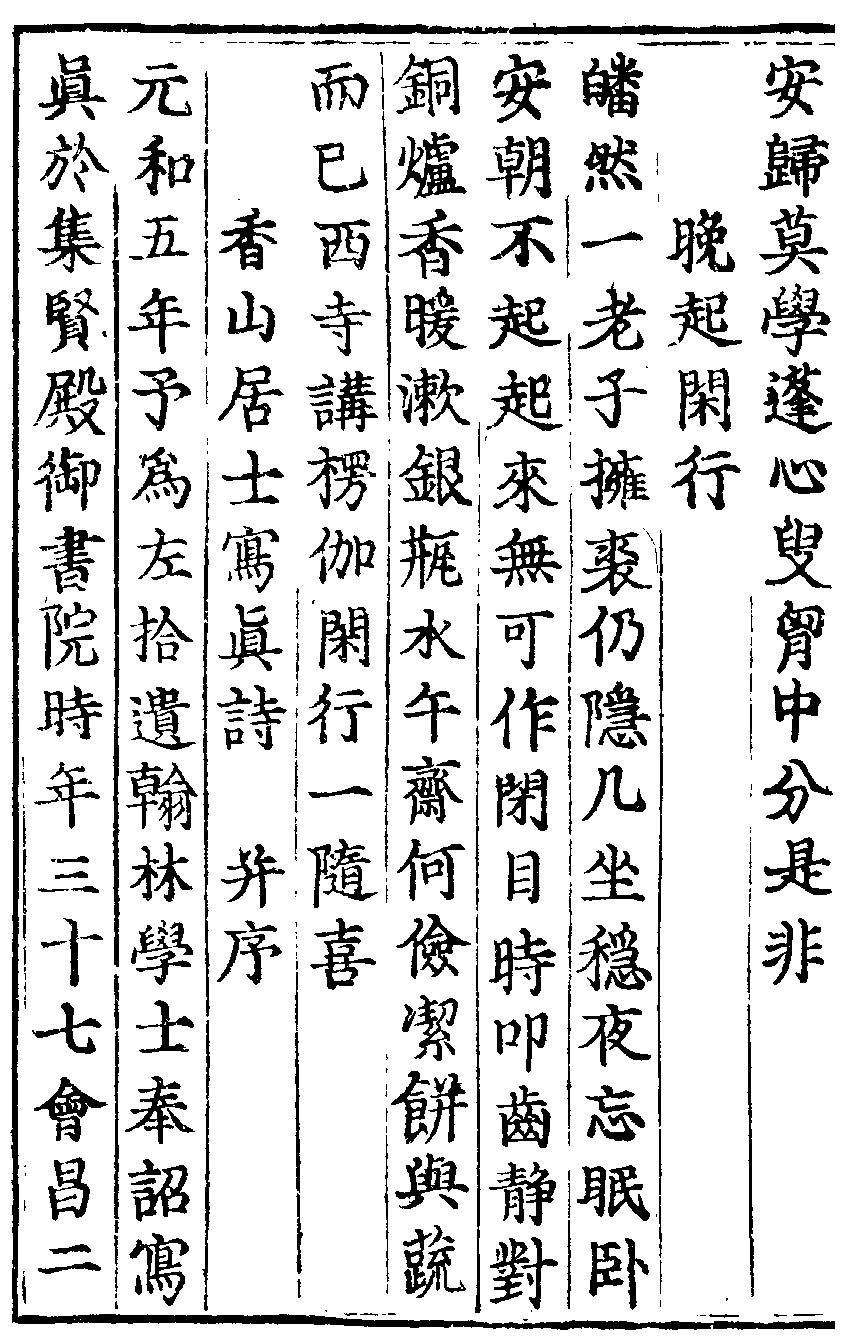 安歸莫學蓬心叟胷中分是非
晚起閑行
皤然一老子擁裘仍隱几坐穩夜忘眠卧
安朝不起起來無可作閉目時叩齒静對
銅爐香暖漱銀瓶水午齋何儉潔餅與蔬
而已西寺講楞伽閑行一隨喜
香山居士寫眞詩　并序
元和五年予爲左拾遺翰林學士奉詔寫
眞於集賢殿御書院時年三十七會昌二